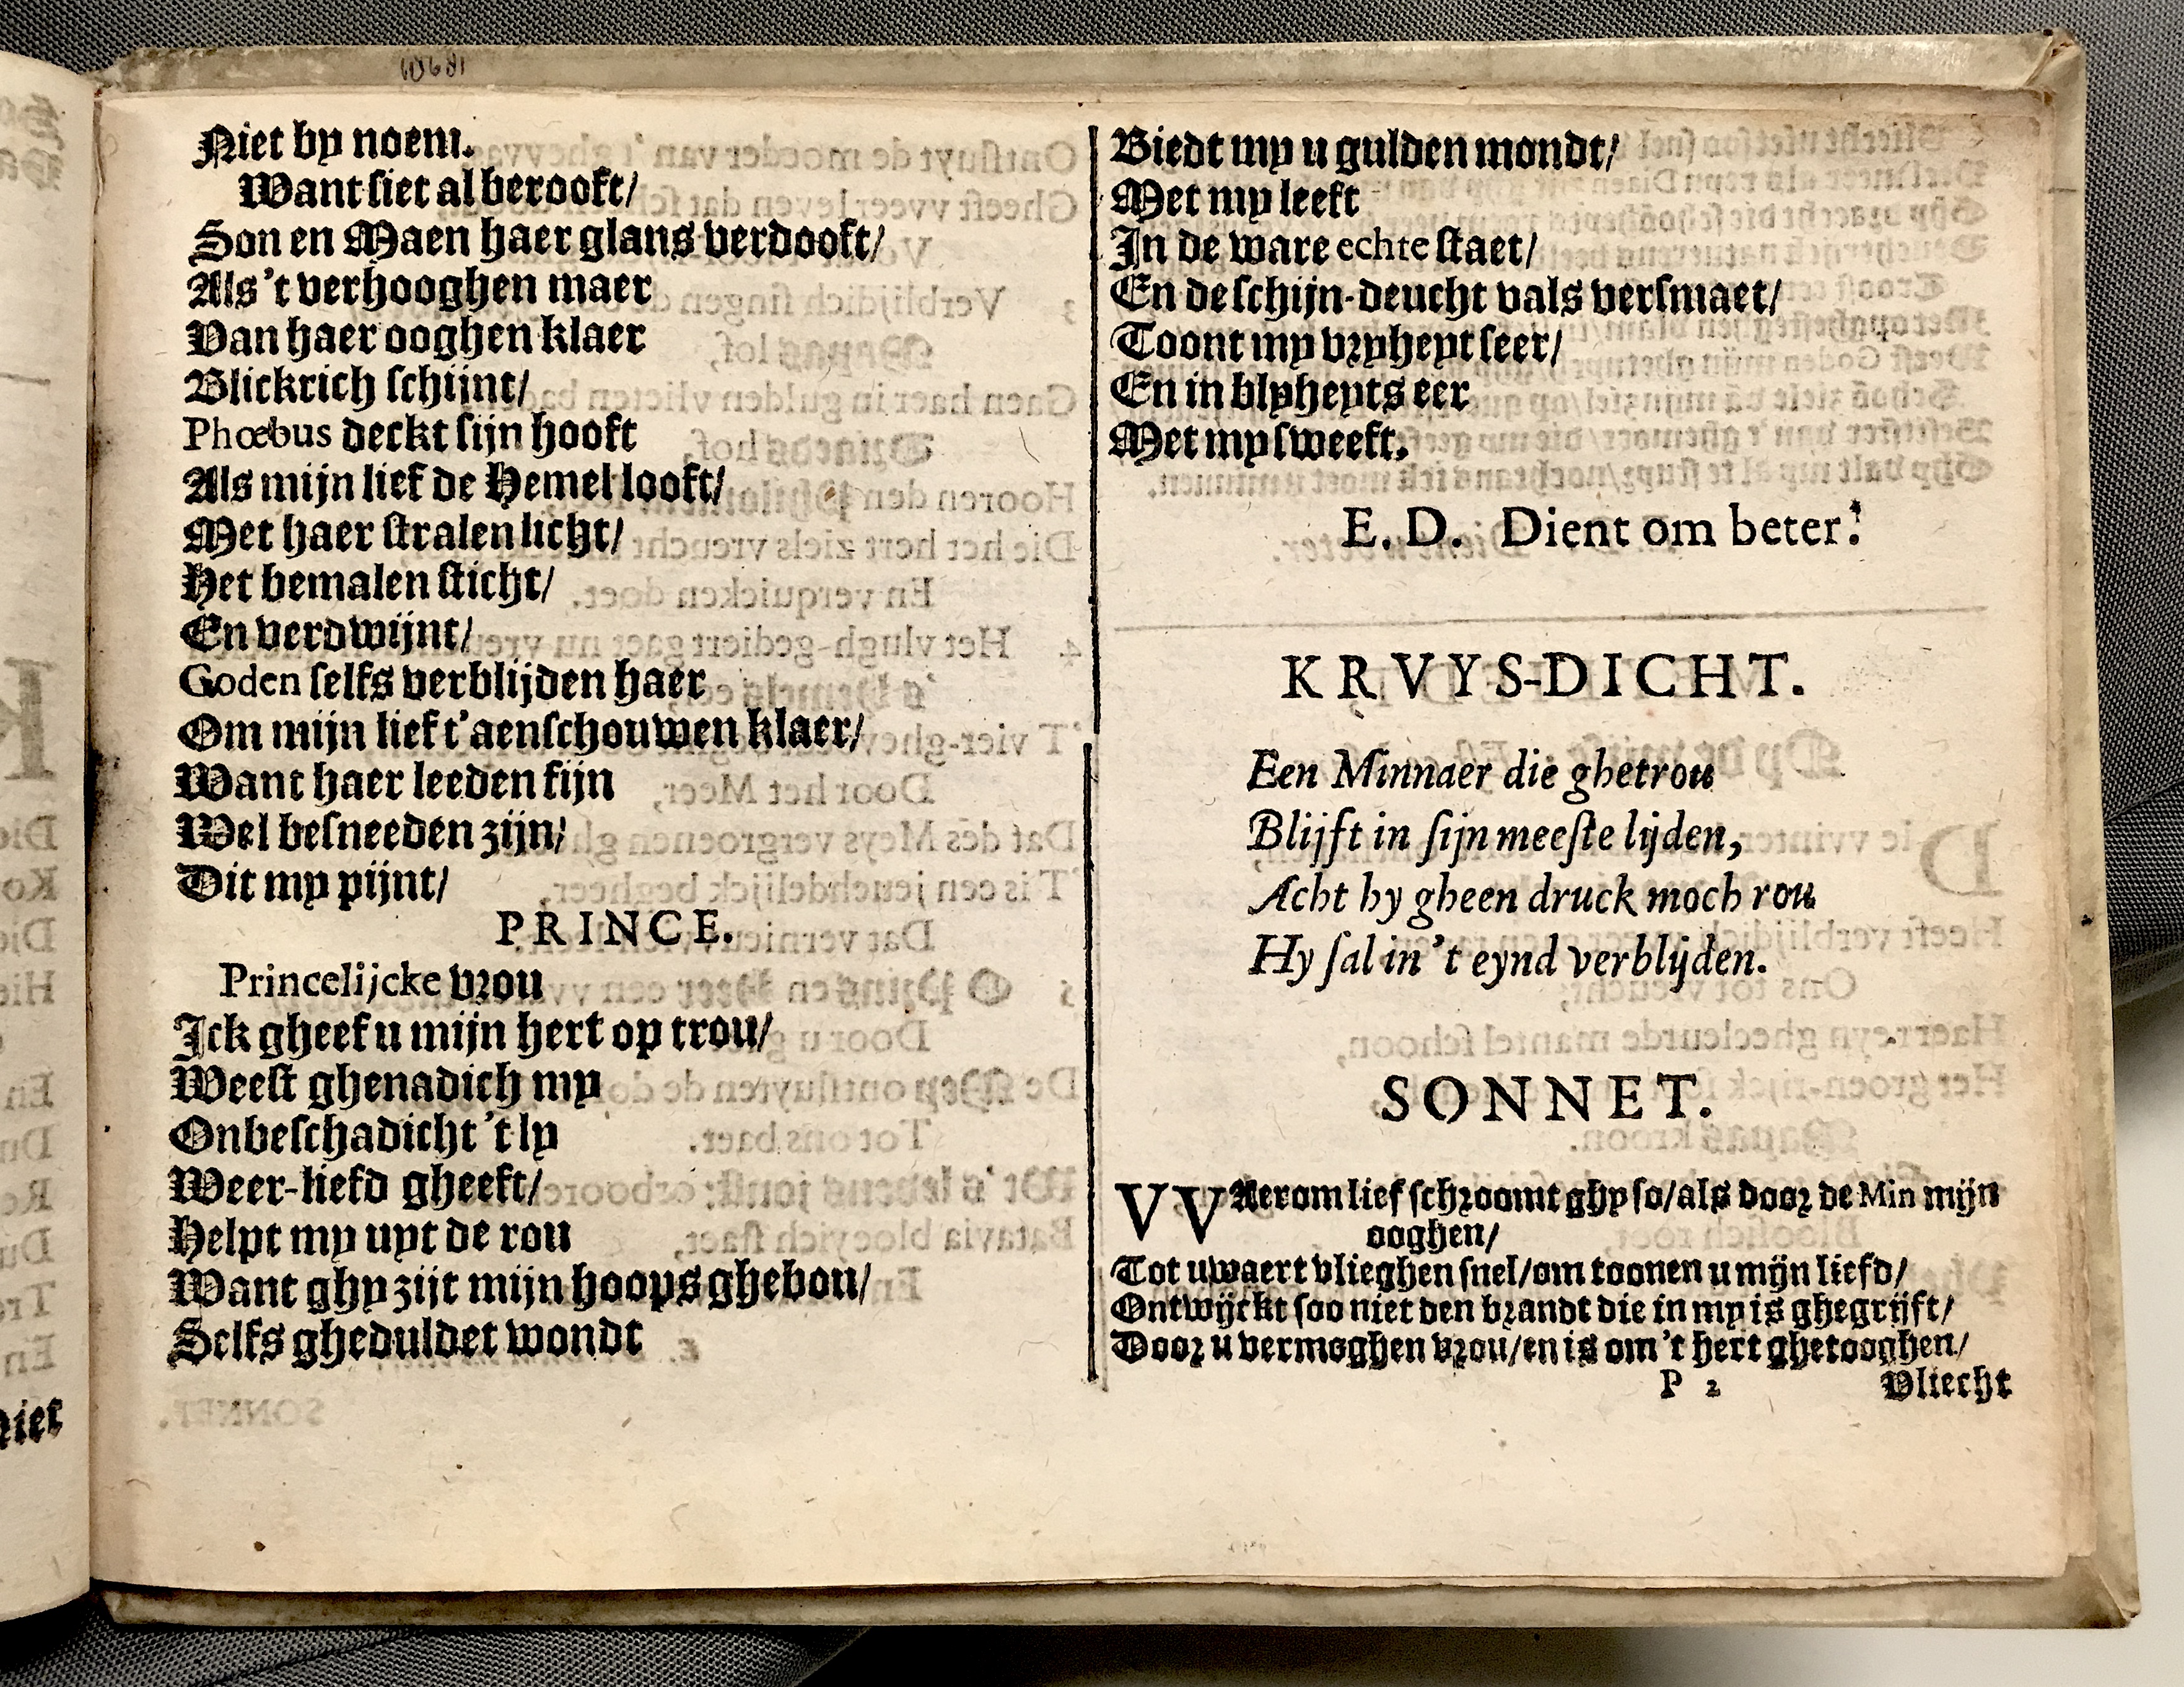 Niet by noem.
Want siet al berooft/
Son en Maen haer glans verdooft/
Als 't verhooghen maer
Van haer ooghen klaer
Blickrich schijnt/
Phœbus deckt sijn hooft
Als mijn lief de Hemel looft/
Met haer stralen licht/
Het bemalen sticht/
En verdwijnt/
Goden selfs verblijden haer
Om mijn lief t'aenschouwen klaer/
Want haer leeden fijn
Wel besneeden zijn/
Dit my pijnt/
PRINCE.
Princelijcke vrou
Ick gheef u mijn hert op trou/
Weest ghenadich my
Onbeschadicht 't ly
Weer-liefd gheeft/
Helpt my uyt de rou
Want ghy zijt mijn hoops ghebou/
Selfs gheduldet wondt
Biedt my u gulden mondt/
Met my leeft
In de ware echte staet/
En de schijn-deucht vals versmaet/
Toont my vryheyt seer/
En in blyheyts eer
Met my sweeft.
E. D. Dient om beter.
KRVYS-DICHT.
Een Minnaer die ghetrou
Blijft in sijn meeste lijden,
Acht hy gheen druck moch rou
Hy sal in 't eynd verblijden.
SONNET.
VVAerom lief schroomt ghy so/als door de Min mijn
ooghen/
Tot uwaert vlieghen snel/om toonen u mijn liefd/
Ontwijckt soo niet den brandt die in my is ghegrijft/
Door u vermoghen vrou/en is om 't hert ghetooghen/
P 2 Vliecht
niet